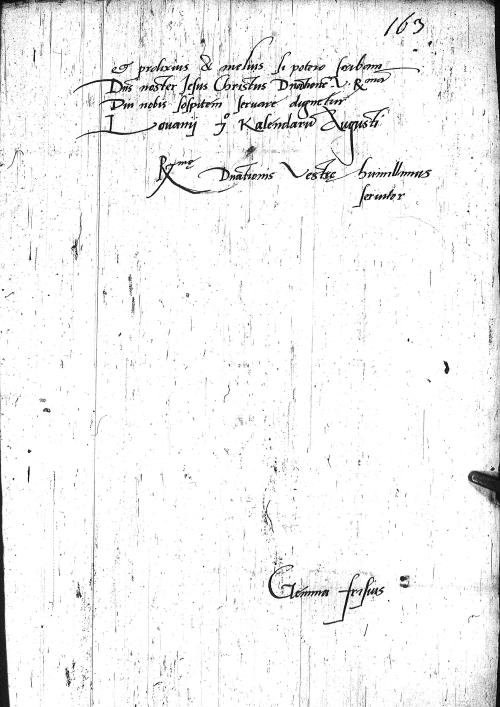 163
et prolixius & melius si potero scribam
Dns noster Jesus Christus Dnationē V. R.mam
Diu nobis sospitem servare dignetur
Lovanij Kalendarū Augusti
R.me Dnationis Vestrę humillimus
servitor
Gemma frisius